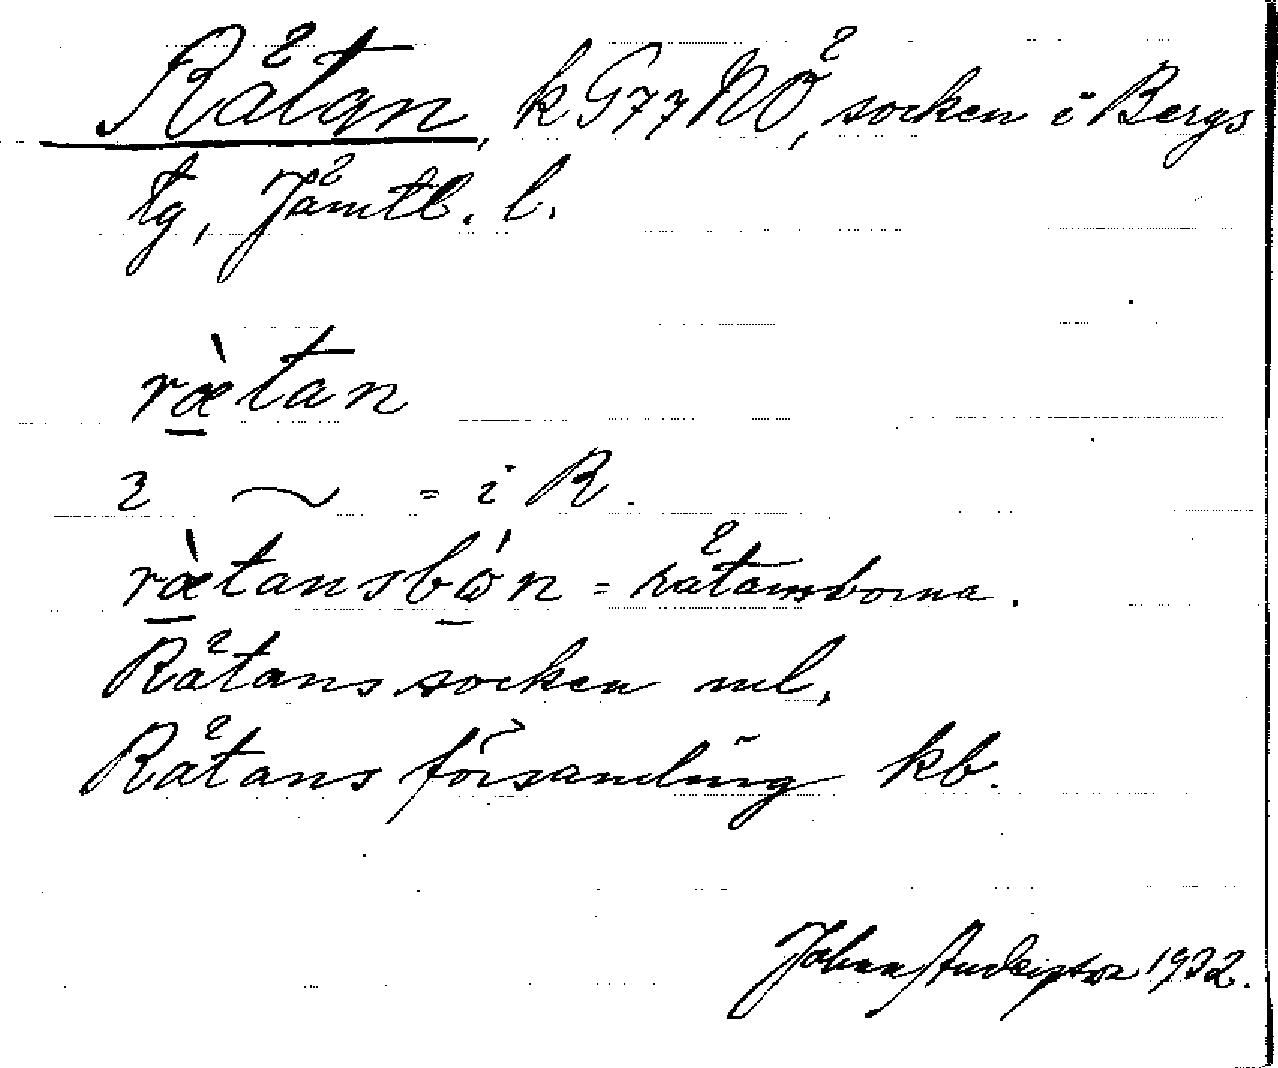 Rätan, k G77NÖ, socken i Bergs
tg, Jämtl. l.
ræ̀tan
i ~ = i R.
ræ̀tansbón = rätansborna.
Rätans socken ml.
Rätans församling kb.
Johan Anderson 1932.